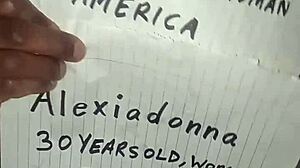 AMERICA
Alexiadonna
30 YEARS OLD,